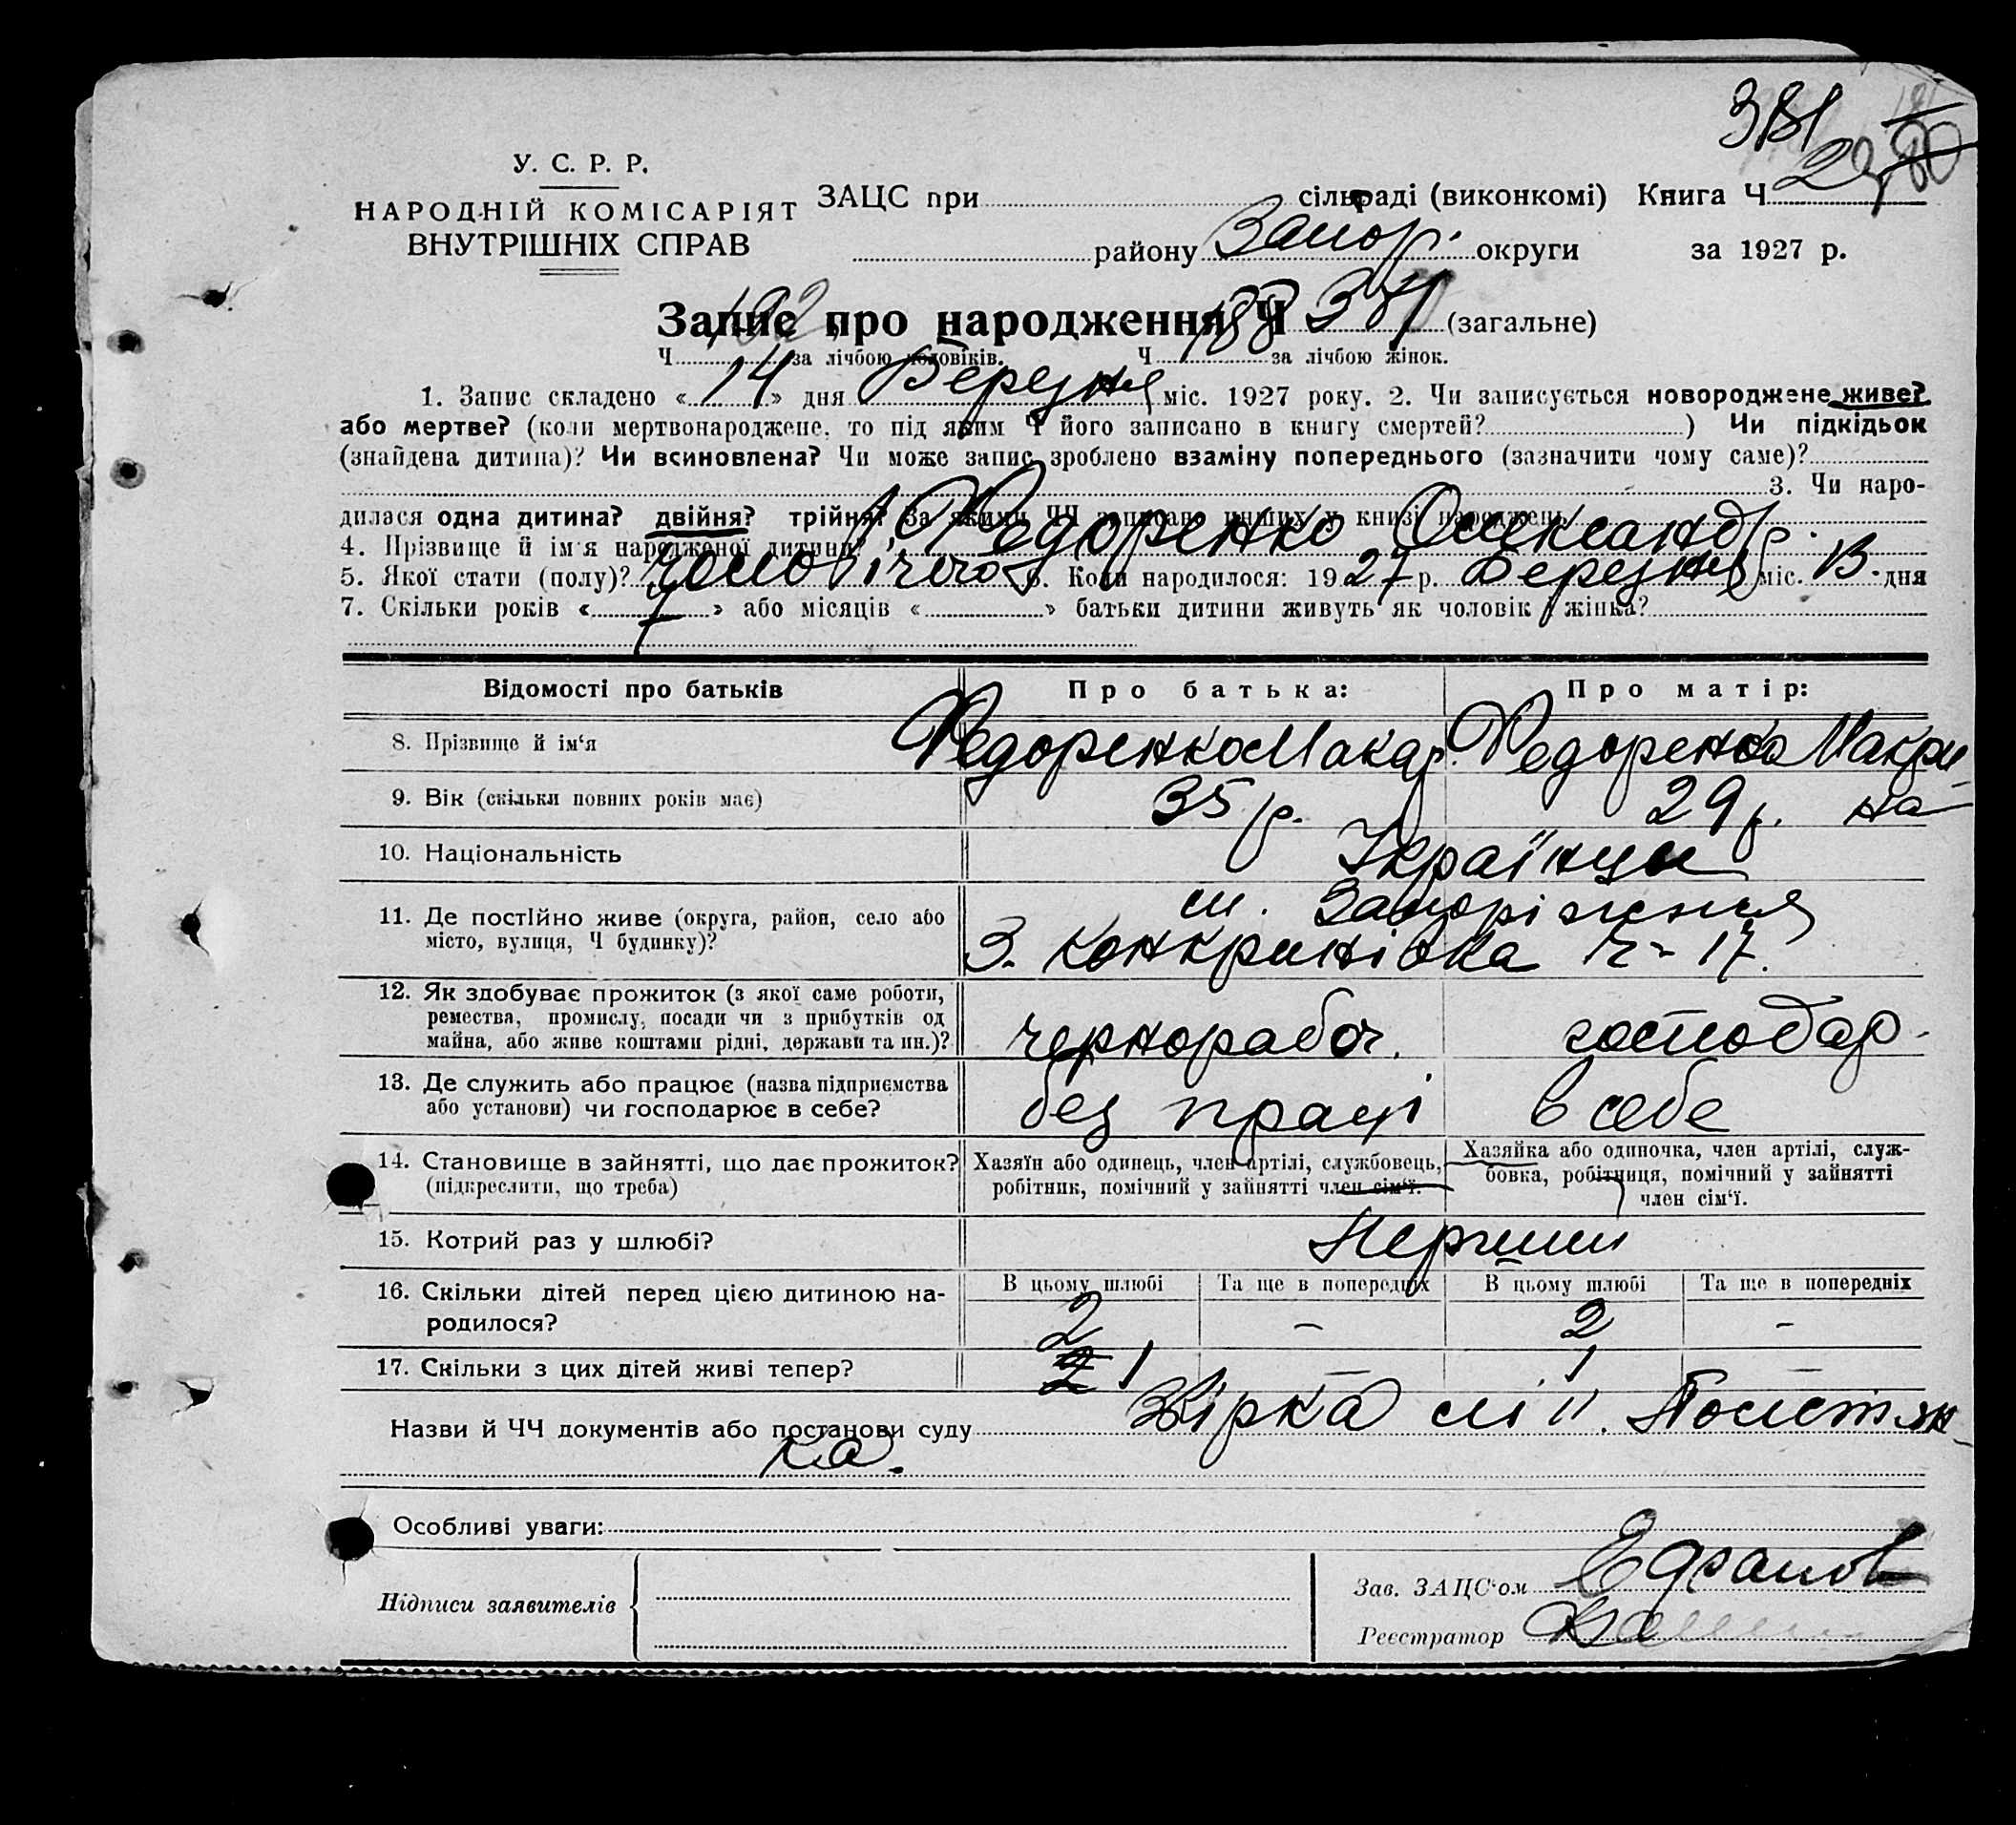 381
У. С. Р. Р.
НАРОДНІЙ КОМІСАРІЯТ
ВНУТРІШНІХ СПРАВ
ЗАЦС при сільраді (виконкомі) Книга Ч 2
району Запор. округи за 1927 р.
Запис про народження Ч (загальне)
Ч 192 за лічбою чоловіків. Ч 188 за лічбою жінок.
1. Запис складено « 14 » дня Березня міс. 1927 року. 2. Чи записується новороджене живе?
або мертве? (коли мертвонароджене, то під яким Ч його записано в книгу смертей? ) Чи підкідьок
(знайдена дитина)? Чи всиновлена? Чи може запис зроблено взаміну попереднього (зазначити чому саме)?
3. Чи наро-
дилася одна дитина? двійня? трійня? За якими ЧЧ записано инших у книзі народжень
4. Прізвище й ім'я народженої дитини? Федоренко Олександр.
5. Якої стати (полу)? чоловічого 6. Коли народилося: 1927 р. Березня міс. 13. дня
7. Скільки років « 7 » або місяців « » батьки дитини живуть як чоловік і жінка?
Відомості про батьків Про батька: Про матір:
8. Прізвище й ім‘я Федоренко Макар. Федоренко Макри-
9. Вік (скільки повних років має) 35 р. 29 р. на
10. Національність Українци
11. Де постійно живе (округа, район, село або м. Запоріжжя
місто, вулиця, Ч будинку)? З. Конкринівка ч- 17.
12. Як здобуває прожиток (з якої саме роботи,
ремества, промислу, посади чи з прибутків од
майна, або живе коштами рідні, держави та ин.)? чернорабоч. господар.
13. Де служить або працює (назва підприємства
або установи) чи господарює в себе? без праці в себе
14. Становище в зайнятті, що дає прожиток? Хазяїн або одинець, член артілі, службовець, Хазяйка або одиночка, член артілі, служ-
(підкреслити, що треба) робітник, помічний у зайнятті член сім‘ї. бовка, робітниця, помічний у зайнятті
член сім‘ї.
15. Котрий раз у шлюбі? Перший
16. Скільки дітей перед цією дитиною на- В цьому шлюбі Та ще в попередніх В цьому шлюбі Та ще в попередніх
родилося? 2 - 2 -
17. Скільки з цих дітей живі тепер? 2 1 — 1
Назви й ЧЧ документів або постанови суду Звірка
ка.
Особливі уваги:
Підписи заявителів
Зав. ЗАЦС‘ом
Реєстратор